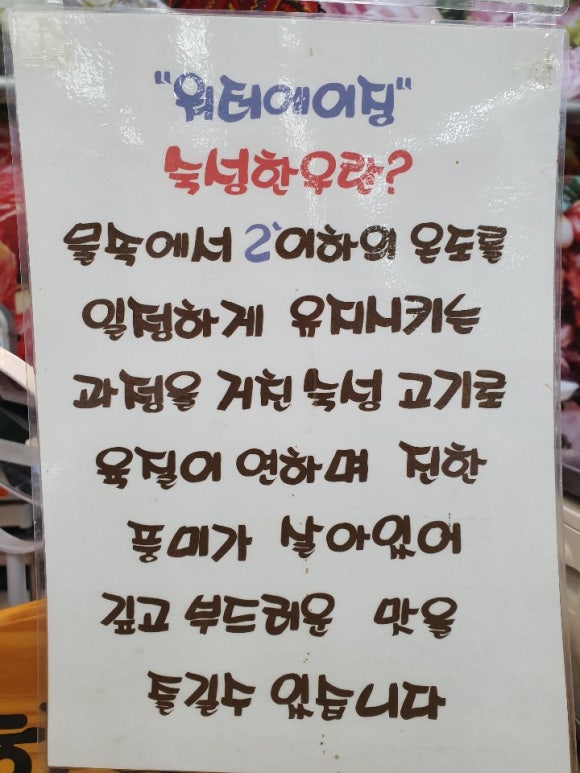 "워터에이징"
숙성한우란?
물속에서 2°이하의 온도를
일정하게 유지시키는
과정을 거친 숙성 고기로
육질이 연하며 진한
풍미가 살아있어
깊고 부드러운 맛을
즐길수 있습니다